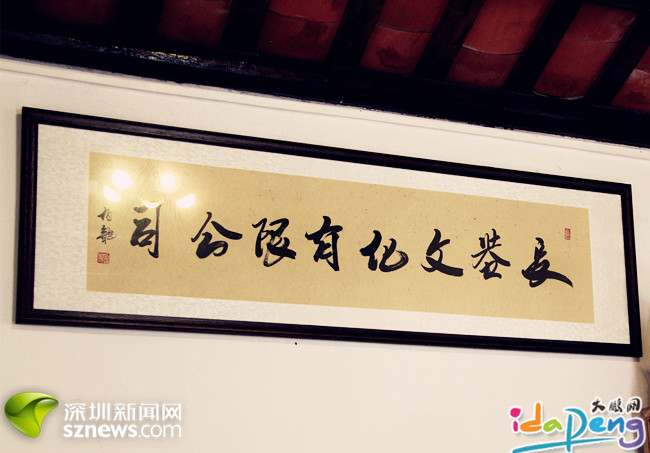 长基文化有限公司
深圳新闻网
sznews.com
大鹏网
idapeng